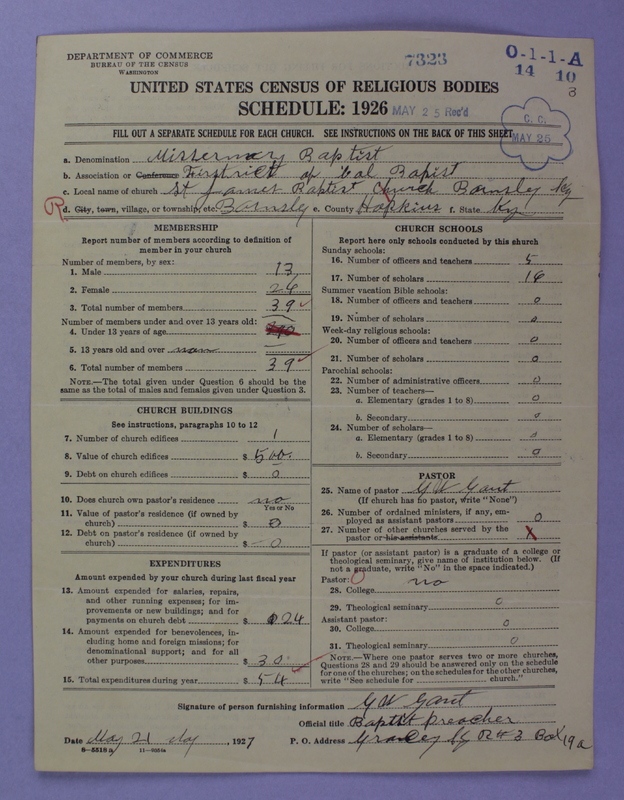 DEPARTMENT OF COMMERCE
BUREAU OF THE CENSUS
WASHINGTON
7323
O-1-1-A
14 10
3
UNITED STATES CENSUS OF RELIGIOUS BODIES
SCHEDULE: 1926 MAY 25 Rec'd
C. C.
MAY 26
FILL OUT A SEPARATE SCHEDULE FOR EACH CHURCH. SEE INSTRUCTIONS ON THE BACK OF THIS SHEET
a. Denomination Missermary Baptist
b. Association or Conference First District of Bapist
c. Local name of church St James Baptist Church Barnsly Ky
R d. City, town, village, or township, etc. Barnsly e. County Hopkins f. State Ky
MEMBERSHIP
Report number of members according to definition of
member in your church
Number of members, by sex:
1. Male 13
2. Female 26
3. Total number of members 39
Number of members under and over 13 years old:
4. Under 13 years of age
5. 13 years old and over
6. Total number of members 39
NOTE.—The total given under Question 6 should be the
same as the total of males and females given under Question 3.
CHURCH BUILDINGS
See instructions, paragraphs 10 to 12
7. Number of church edifices 1
8. Value of church edifices $ 500.
9. Debt on church edifices $ 0
10. Does church own pastor's residence no
Yes or No
11. Value of pastor's residence (if owned by
church) $ 0
12. Debt on pastor's residence (if owned by
church) $ 0
EXPENDITURES
Amount expended by your church during last fiscal year
13. Amount expended for salaries, repairs,
and other running expenses; for im-
provements or new buildings; and for
payments on church debt $ 24
14. Amount expended for benevolences, in-
cluding home and foreign missions; for
denominational support; and for all
other purposes $ 30
15. Total expenditures during year $ 54
CHURCH SCHOOLS
Report here only schools conducted by this church
Sunday schools:
16. Number of officers and teachers 5
17. Number of scholars 16
Summer vacation Bible schools:
18. Number of officers and teachers 0
19. Number of scholars 0
Week-day religious schools:
20. Number of officers and teachers 0
21. Number of scholars 0
Parochial schools:
22. Number of administrative officers 0
23. Number of teachers—
a. Elementary (grades 1 to 8) 0
b. Secondary 0
24. Number of scholars—
a. Elementary (grades 1 to 8) 0
b. Secondary 0
PASTOR
25. Name of pastor G W Gant
(If church has no pastor, write "None")
26. Number of ordained ministers, if any, em-
ployed as assistant pastors 0
27. Number of other churches served by the
pastor or his assistants X
If pastor (or assistant pastor) is a graduate of a college or
theological seminary, give name of institution below. (If
not a graduate, write "No" in the space indicated.)
Pastor: 0
28. College no
29. Theological seminary 0
Assistant pastor:
30. College 0
31. Theological seminary 0
NOTE.—Where one pastor serves two or more churches,
Questions 28 and 29 should be answered only on the schedule
for one of the churches; on the schedules for the other churches,
write "See schedule for church."
Signature of person furnishing information G W Gant
Official title Baptist preacher
Date May 21 day, 1927 P. O. Address Gracey Ky R # 3 Box 19 a
8—5518 a 11—9954a